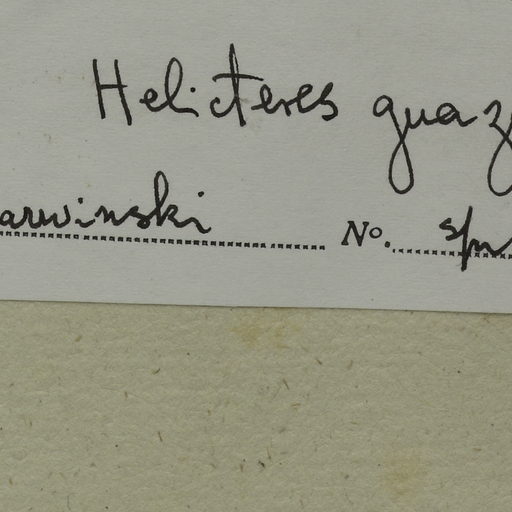 Helicteres guaz
arwinski No. s/n